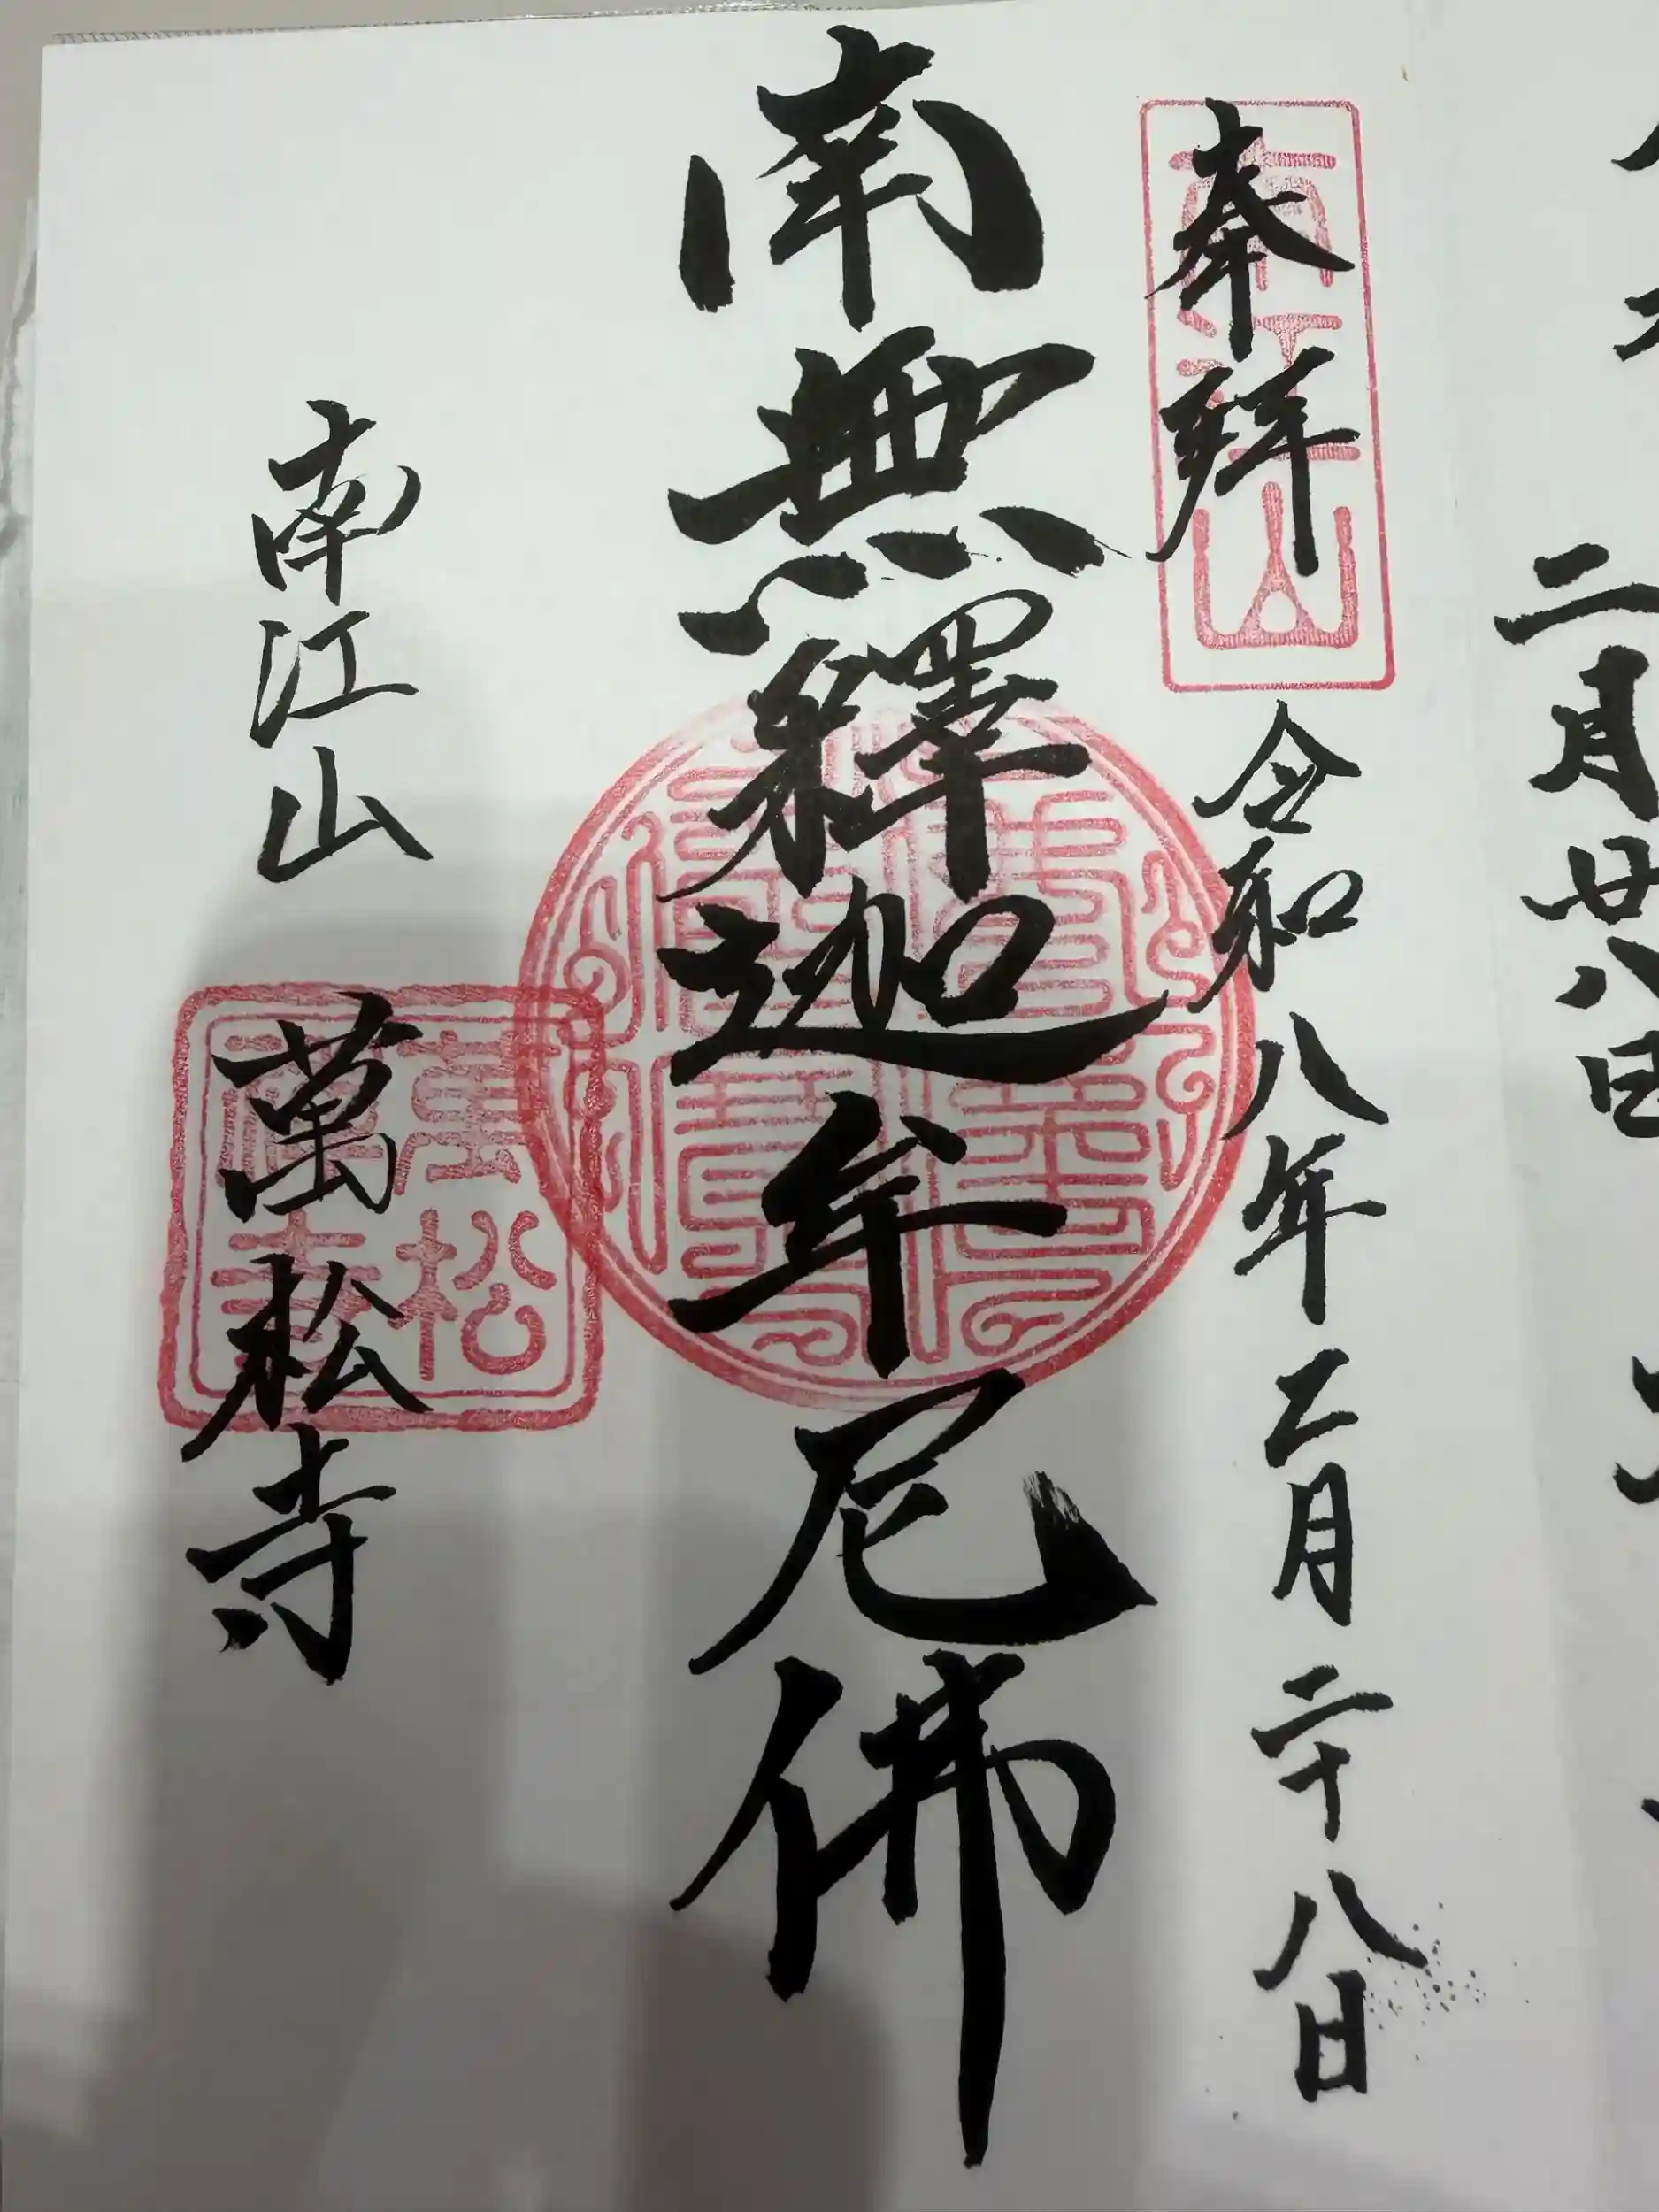 二月廿八日
奉拝
南江山
令和八年二月二十八日
南無釋迦牟尼佛
南江山 萬松寺
萬松
禅寺